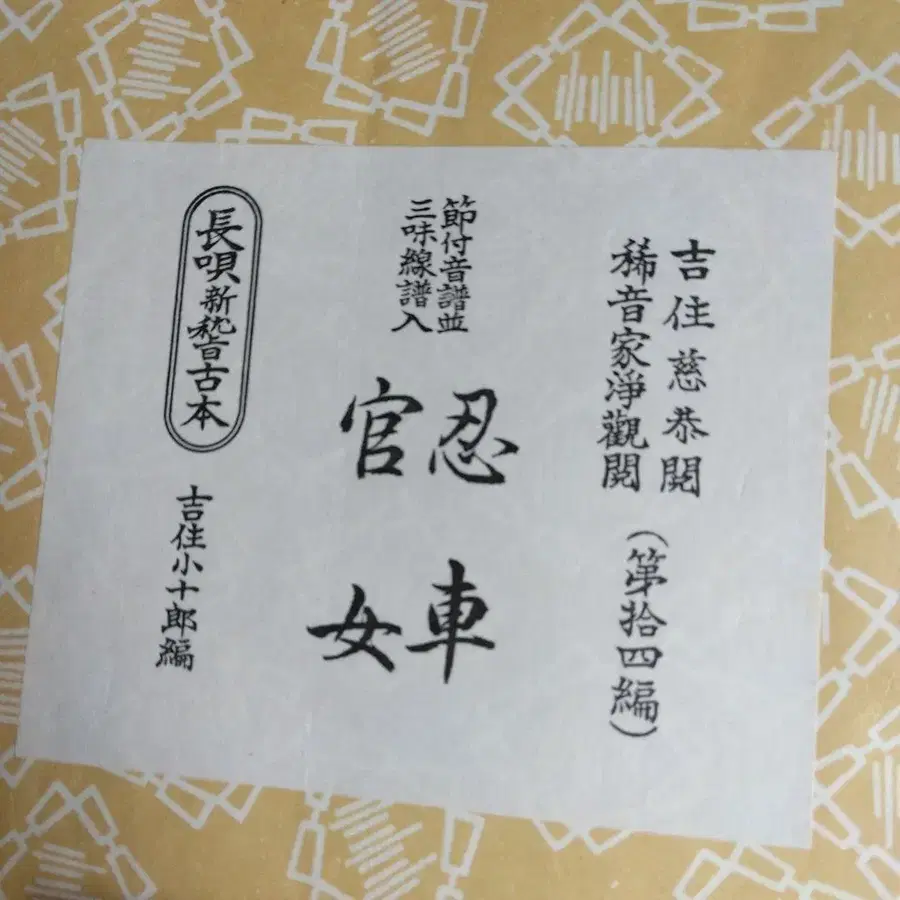 吉住慈恭閲
稀音家淨觀閲
(第拾四編)
節付音譜並
三味線譜入
忍車
官女
長唄新稽古本
吉住小十郎編